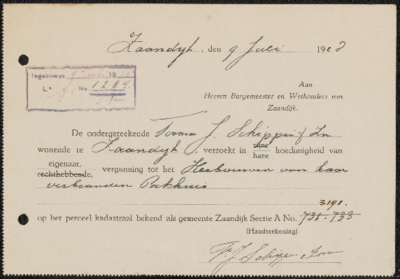 Zaandijk, den 9 Juli 1923
Ingekomen
No 1284
Aan
Heeren Burgemeester en Wethouders van
Zaandijk.
De ondergeteekende Firma J. Schipper & Zn
wonende te Zaandijk, verzoekt in zijne hare hoedanigheid van
eigenaar, rechthebbende, vergunning tot het Herbouwen van haar
verbranden Pakhuis
3191.
op het perceel kadastraal bekend als gemeente Zaandijk Sectie A No. 731-733
(Handteekening)
Fa J. Schipper & Zoon